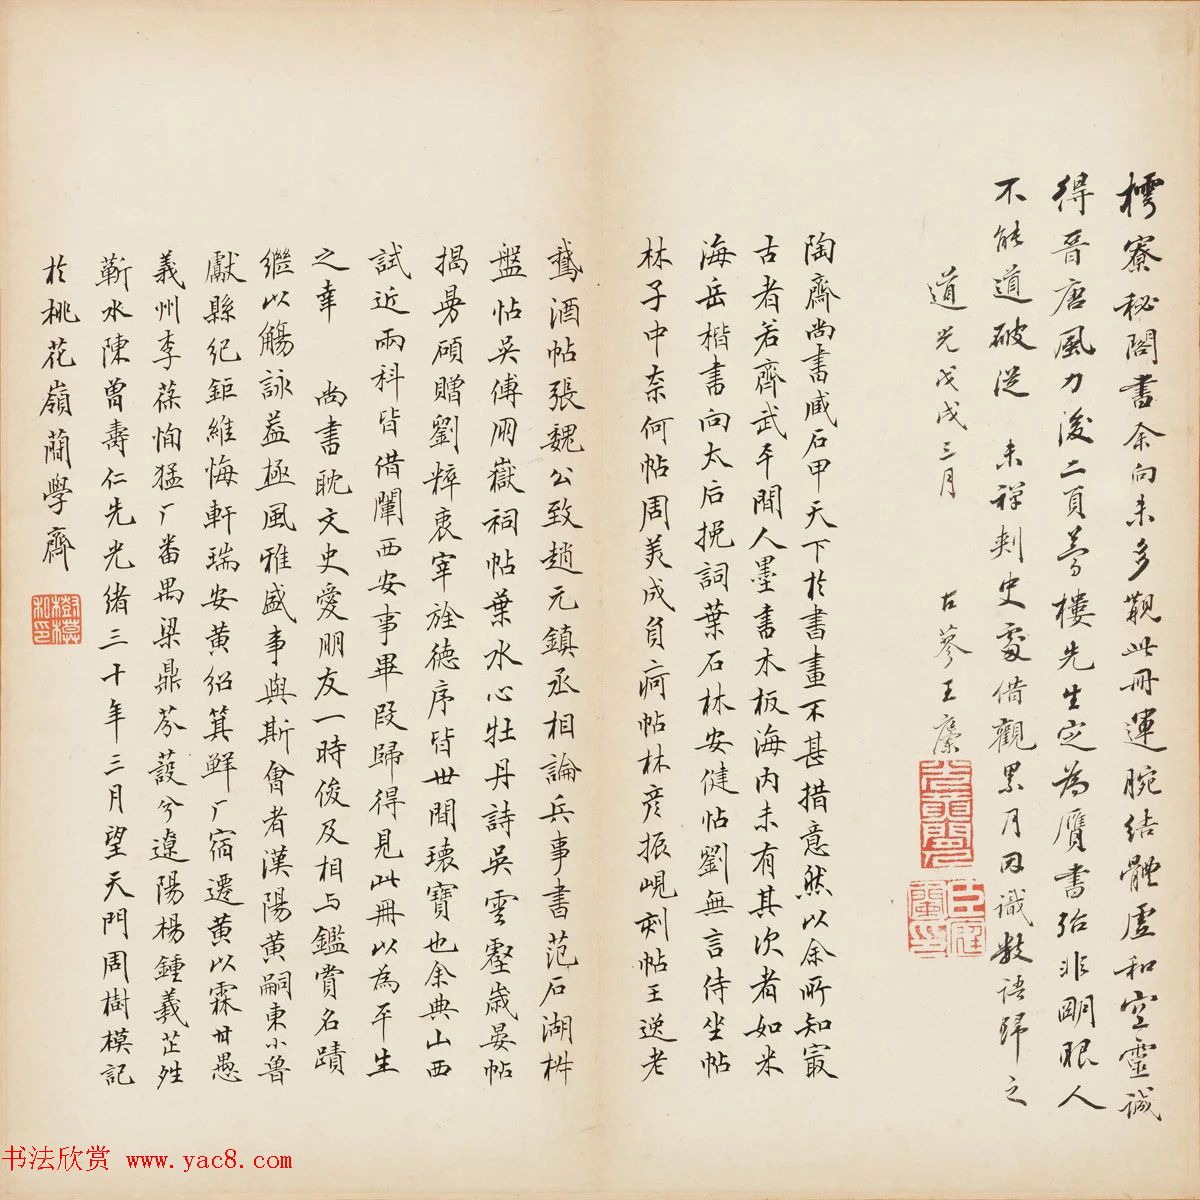 樗寮秘閣書余向未多觀此冊運腕結體虛和空靈誠
得晉唐風力後二頁夢樓先生定為贋書殆非明眼人
不能道破從 未禪刺史處借觀累月因識數語歸之
道光戊戌三月 古蓼王
陶齋尚書臧石甲天下於書畫不甚措意然以余所知㝡
古者若齊武平間人墨書木板海内未有其次者如米
海岳楷書向太后挽詞葉石林安健帖劉無言侍坐帖
林子中柰何帖周美成負疴帖林彥振峴刻帖王逸老
鵞酒帖張魏公致趙元鎮丞相論兵事書范石湖
盤帖吳傅朋嶽祠帖葉水心牡丹詩吳雲壑歲晏帖
揭曼碩贈劉粹衷宰旌德序皆世聞瓌寶也余典山西
試近兩科皆借闈西安事畢叚歸得見此冊以為平生
之幸 尚書耽文史愛朋友一時俊及相与鑑賞名蹟
繼以觴詠益極風雅盛事與斯會者漢陽黃嗣東小魯
獻縣紀鉅維悔軒瑞安黃紹箕鮮厂宿遷黃以霖毌愚
義州李葆恂猛厂番禺梁鼎芬薐兮遼陽楊鍾羲芷夝
蘄水陳曾壽仁先光緒三十年三月望天門周樹模記
於桃花嶺蕳學齋
周樹模印
书法欣赏 www.yac8.com